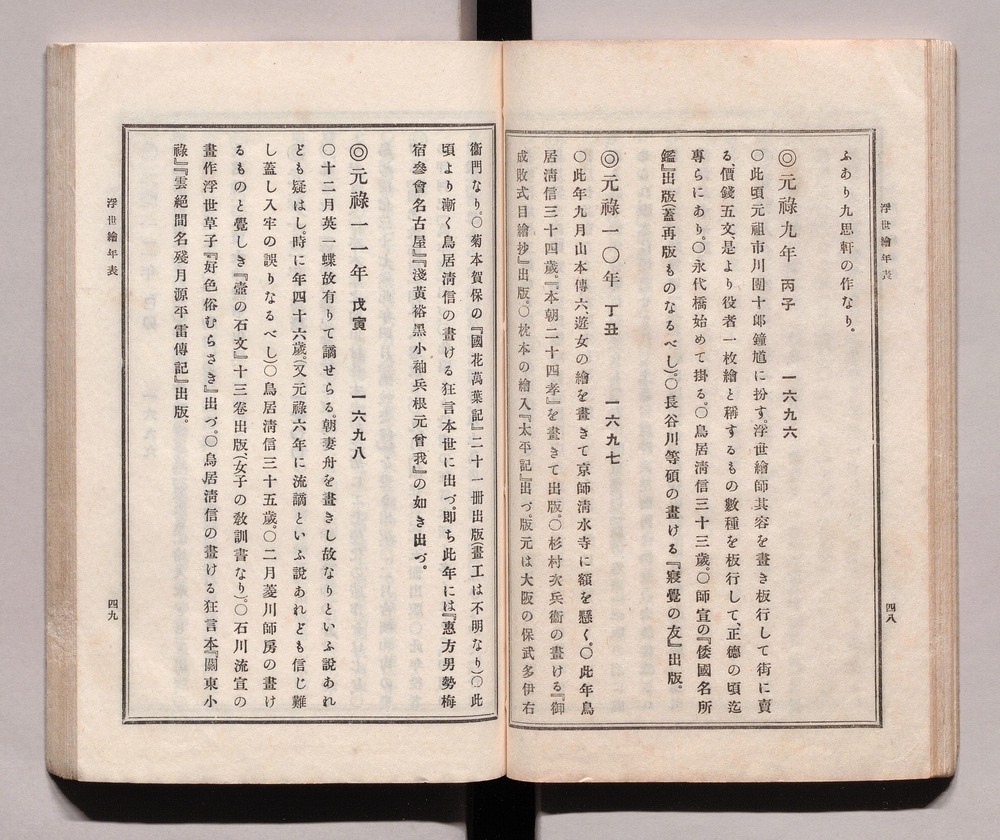 浮世繪年表
四八
ふあり九思軒の作なり。
◎元祿九年 丙子 一六九六
〇此頃元祖市川團十郎鐘馗に扮す。浮世繪師其容を畫き板行して街に賣
る、價錢五文是より役者一枚繪と稱するもの數種を板行して、正德の頃迄
專らにあり。〇永代橋始めて掛る。〇鳥居淸信三十三歲。〇師宣の『倭國名所
鑑』出版(蓋再版ものなるべし。)〇長谷川等碩の畫ける『寢覺の友』出版。
◎元祿一〇年 丁丑 一六九七
〇此年九月山本傳六、遊女の繪を畫きて京師淸水寺に額を懸く。〇此年鳥
居淸信三十四歲。『本朝二十四孝』を畫きて出版。〇杉村次兵衞の畫ける『御
成敗式目繪抄』出版。〇枕本の繪入『太平記』出づ。版元は大阪の保武多伊右
衞門なり。〇菊本賀保の『國花萬葉記』二十一冊出版(畫工は不明なり)〇此
頃より漸く鳥居淸信の畫ける狂言本世に出づ。卽ち此年には『惠方男勢梅
宿參會名古屋』『淺黃裕黑小袖兵根元曾我』の如き出づ。
◎元祿一一年 戊寅 一六九八
〇十二月英一蝶故有りて謫せらる。朝妻舟を畫きし故なりといふ說あれ
ども疑はし。時に年四十六歲。(又元祿六年に流謫といふ說あれども信じ難
し蓋し入牢の誤りなるべし)〇鳥居淸信三十五歲。〇二月菱川師房の畫け
るものと覺しき『壺の石文』十三卷出版(女子の敎訓書なり)。〇石川流宣の
畫作浮世草子『好色俗むらさき』出づ。〇鳥居淸信の畫ける狂言本『關東小
祿』『雲絕間名殘月源平雷傳記』出版。
浮世繪年表
四九